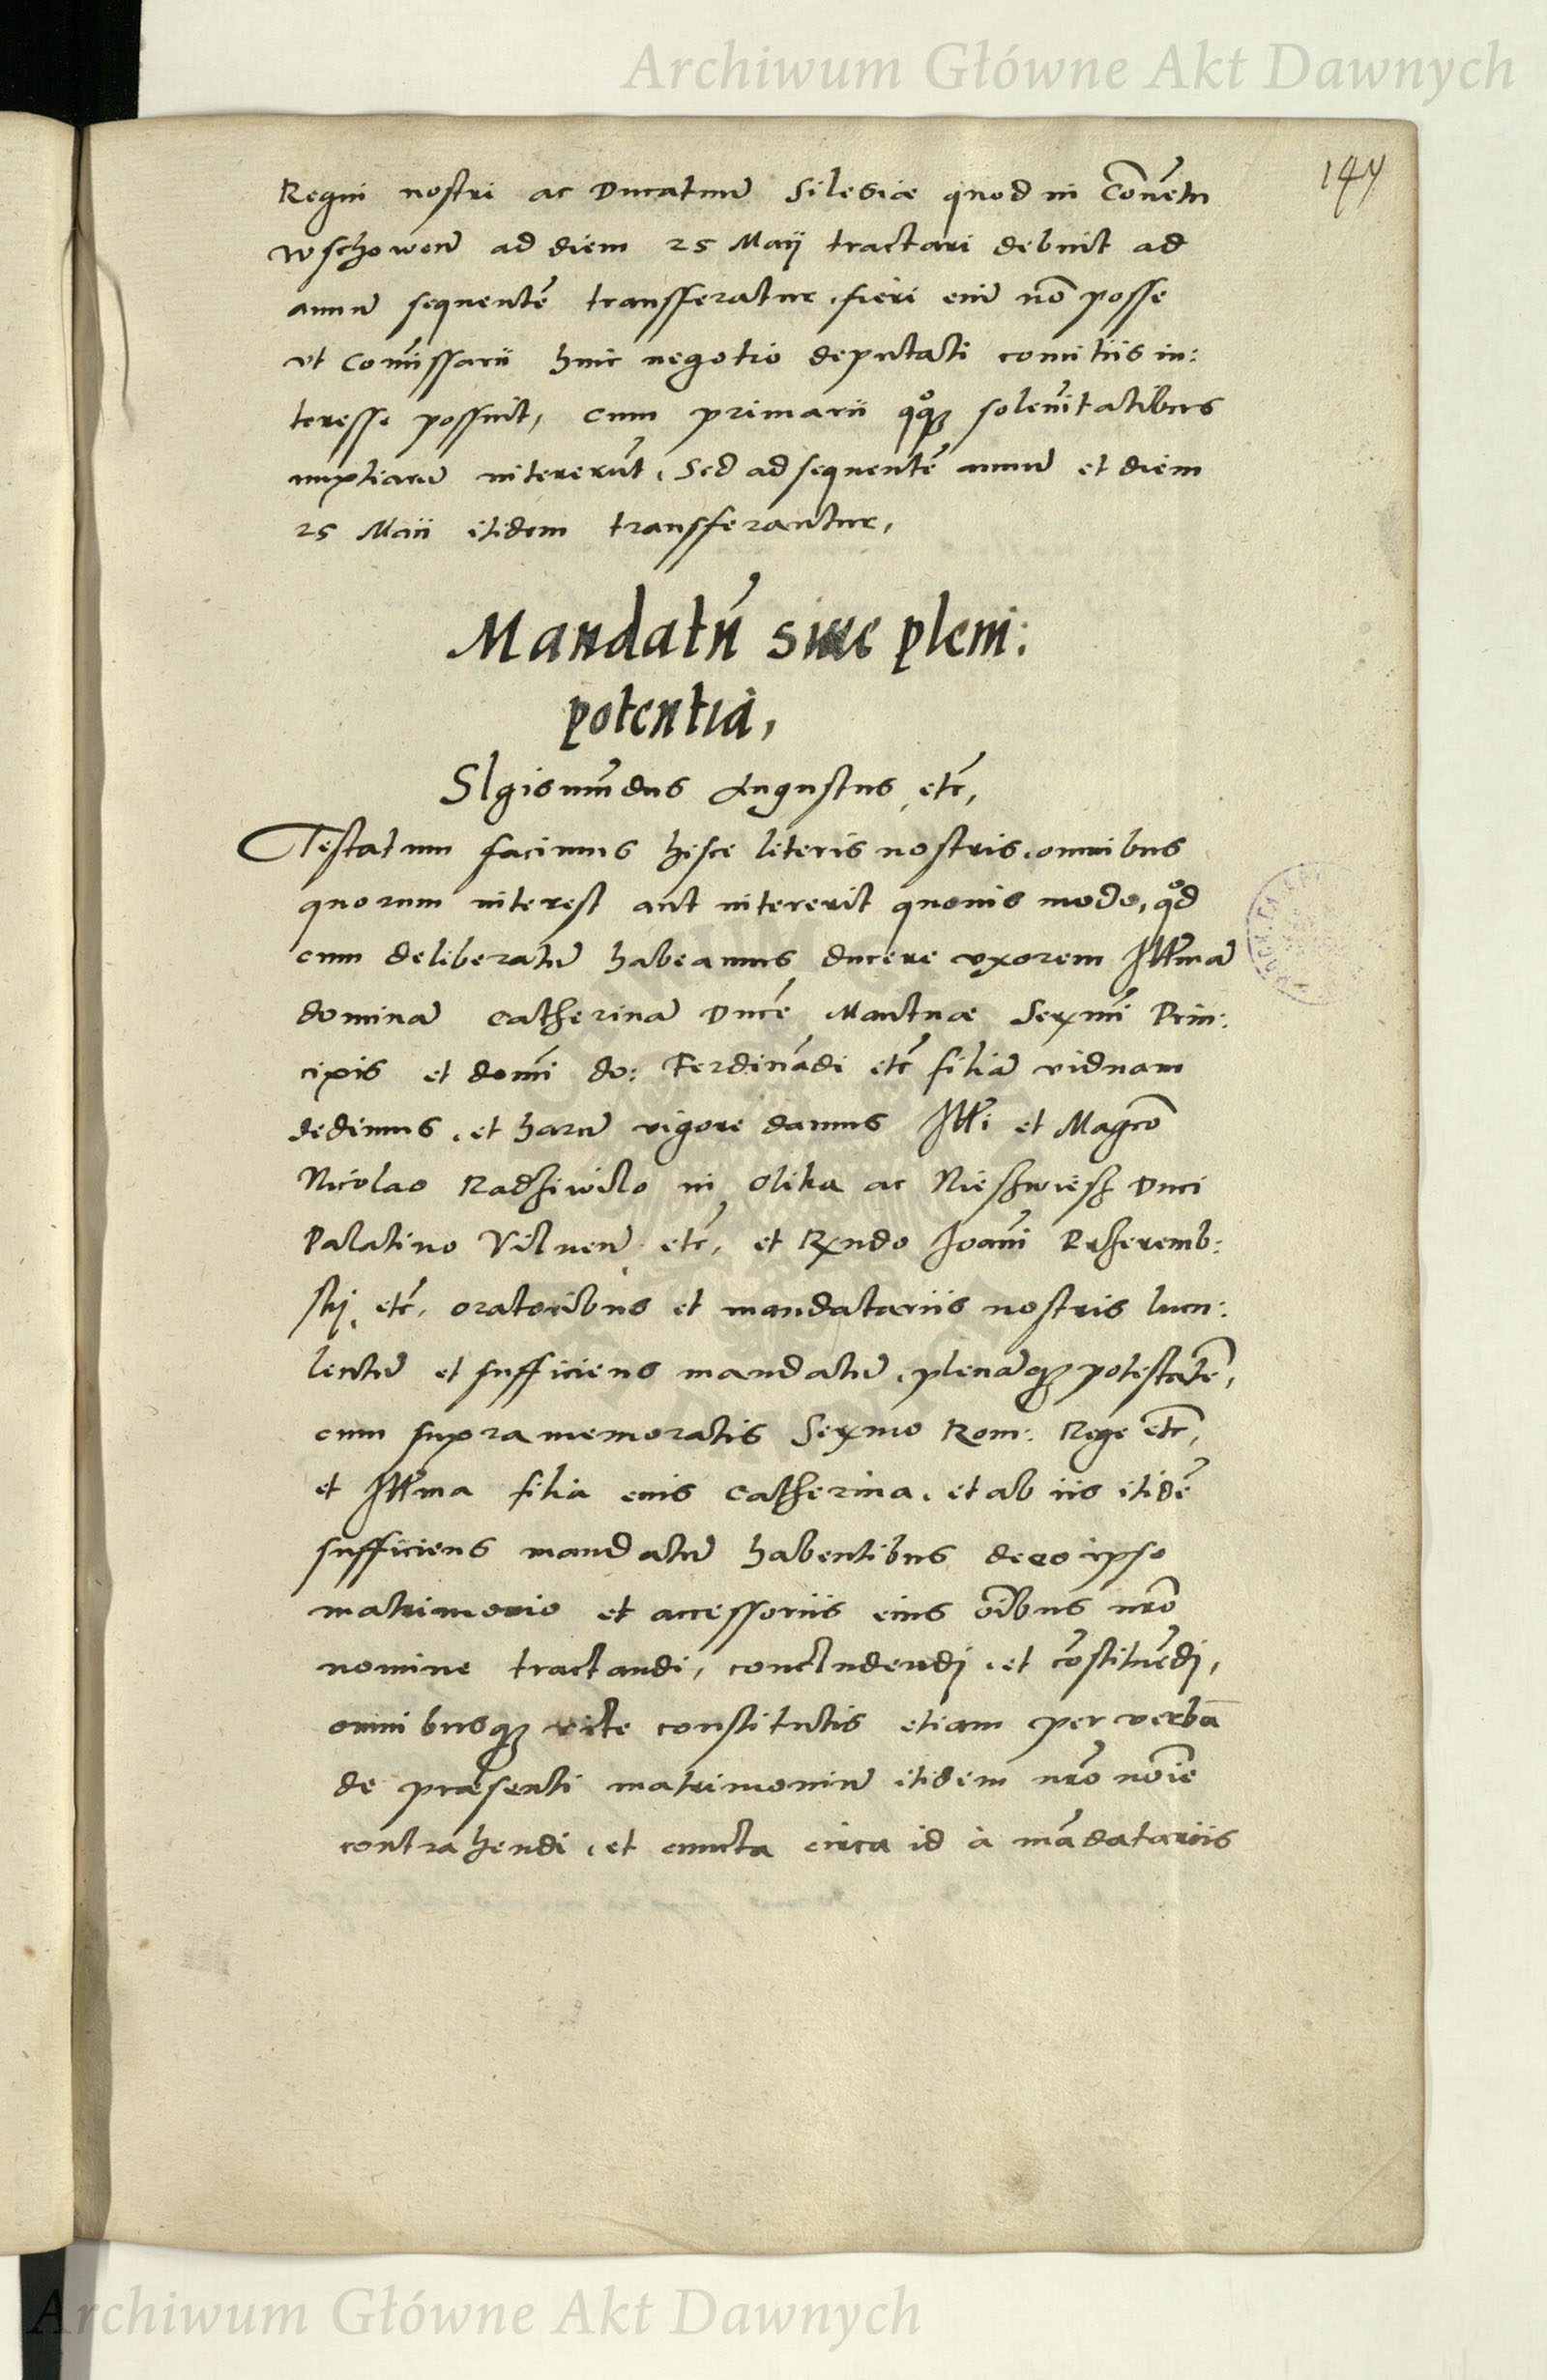 Archiwum Główne Akt Dawnych
144
Regni nostri ac Ducatuū Silesiae quod in Cōuētu
Wschowen̄ ad diem 25 Maÿ tractari debuit ad
annū sequentē transferatur, fieri enī nō posse
ut Comīssarii huic negotio deputati comitiis in:
teresse possint, cum primarii qͦqꝫ solēnitatibus
nuptiarū intererūt, Sed ad sequentē annū et diem
25 Maii itidem transferantur,
Mandatū siue pleni:
potentia,
SIgismūdus Augustus etc̄,
Testatum facimus hisce literis nostris, omnibus
quorum interest aut intererit quouis modo, qͦd
cum deliberatū habeamus ducere uxorem Illr̄mā
dominā Catherinā Ducē Mantuae Serm̄i Prin:
cipis et domī do: Ferdināndi etc̄ filiā viduam
dedimus, et harū vigore damus Illr̄i et Magc̄o
Nicolao Radziwilo in Olika ac Nieszwiesz Duci
Palatino Vilnen̄ etc̄, et Rn̄do Joanī Przeremb:
skj etc̄, oratoribus et mandatariis nostris lucu:
lentū et sufficiens mandatū, plenāqꝫ potestatē,
cum supramemoratis Serm̄o Rom: Rege etc̄,
et Illr̄ma filia eius Catherina, et ab iis itidē
sufficiens mandatū habentibus de eo ipso
matrimonio et accessoriis eius oībus nr̄o
nomine tractandi, concludendj, et cōstituēdj,
omnibusqꝫ rite constitutis etiam per verbā
de praesenti matrimoniū itidem nr̄o noīe
contrahendi, et cuncta circa id à māndatariis
Archiwum Główne Akt Dawnych